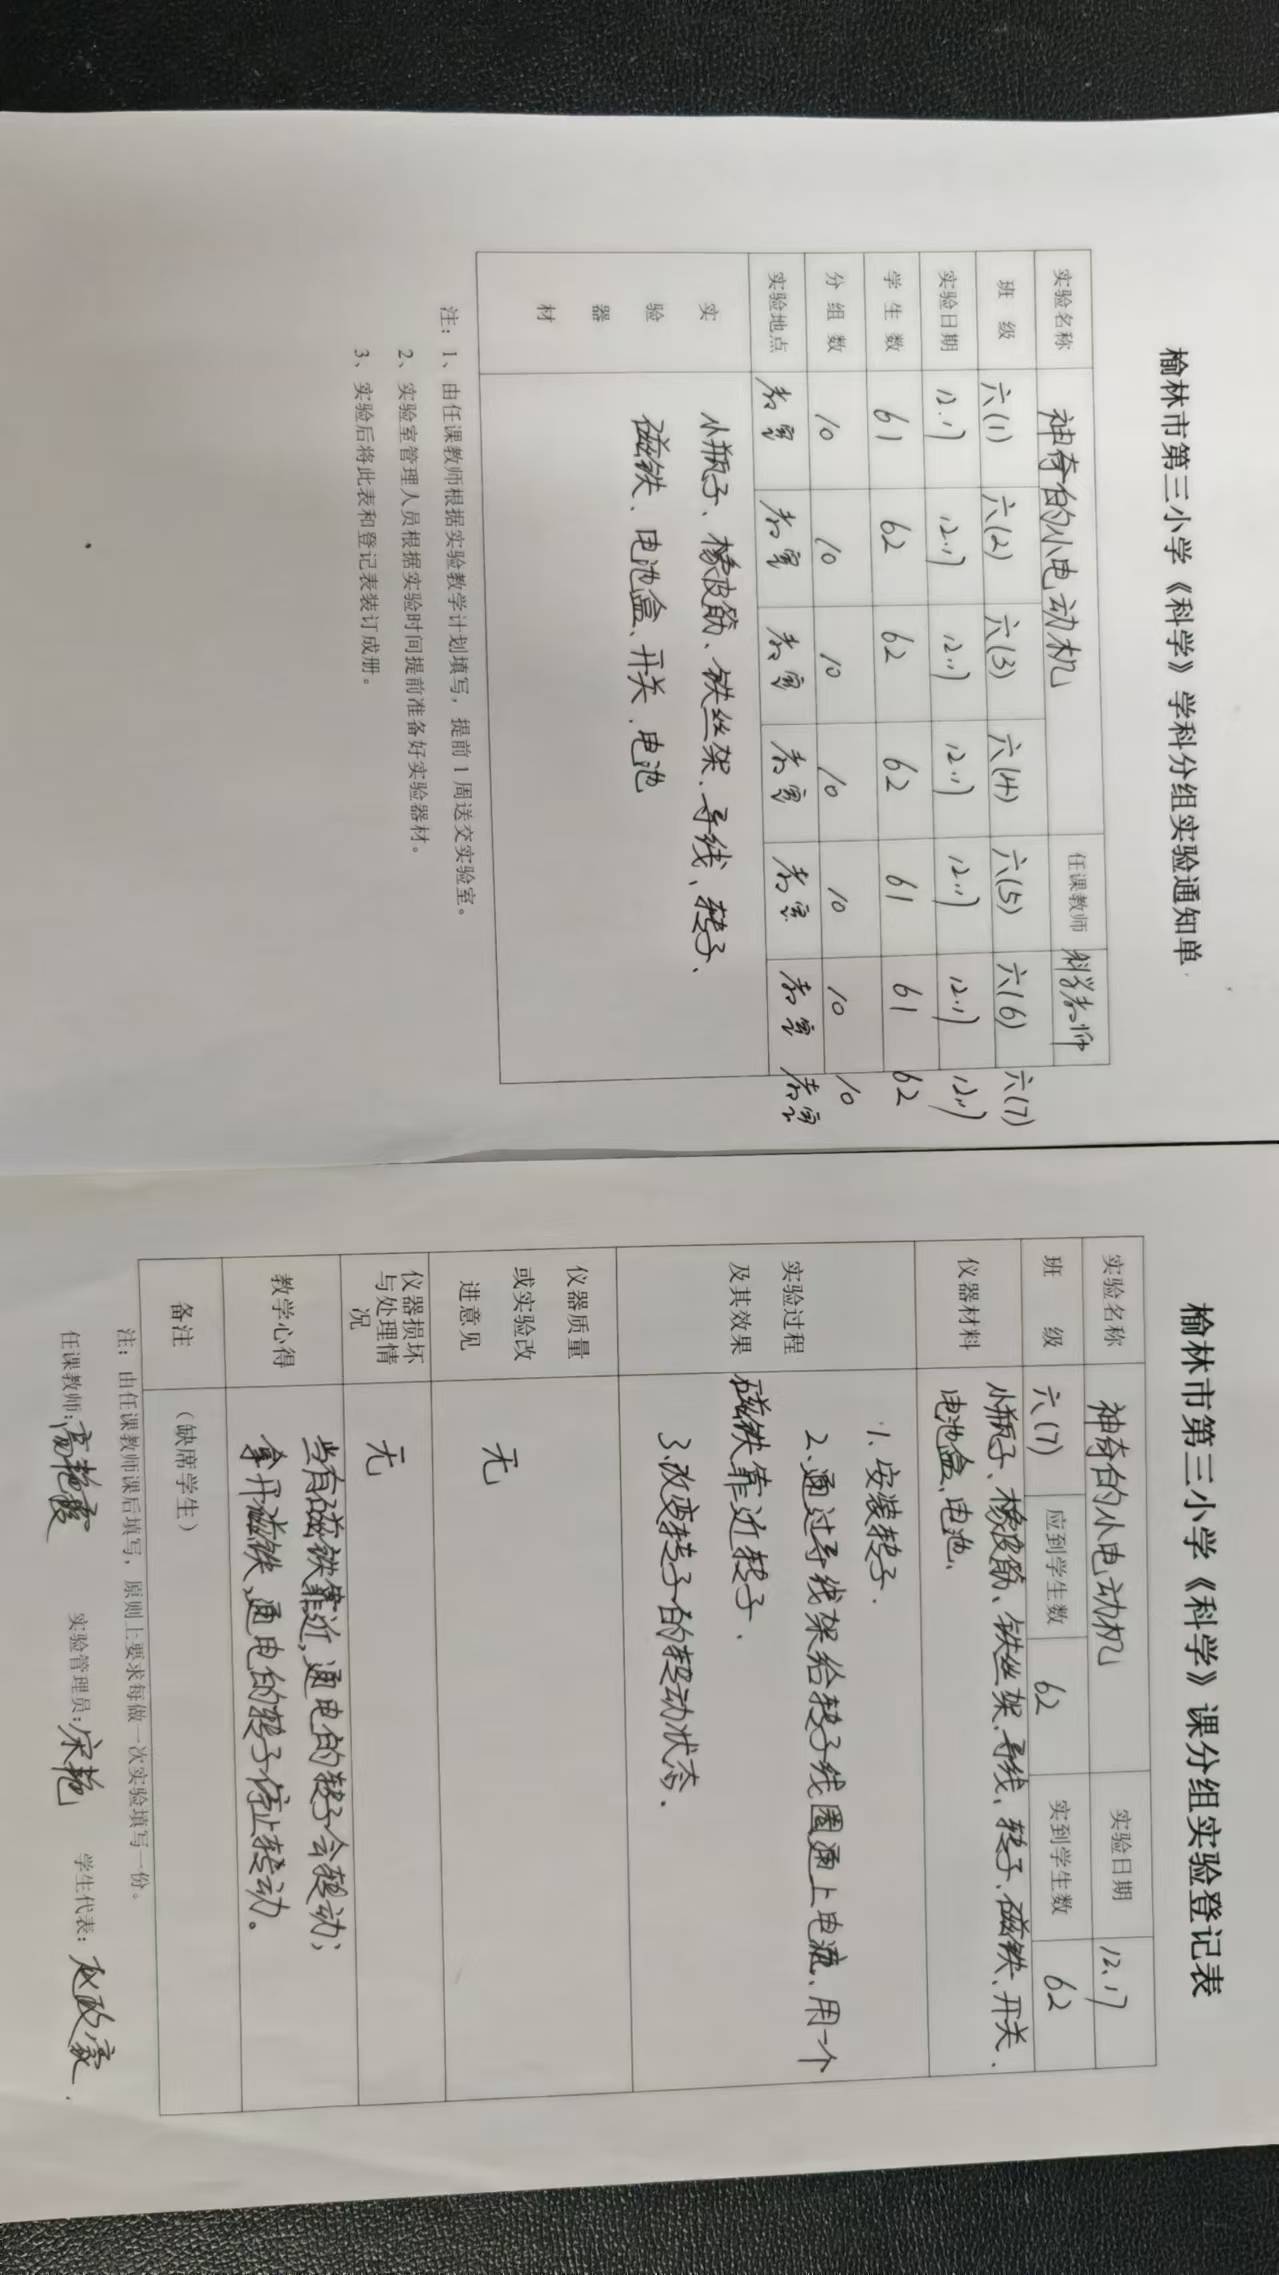 榆林市第三小学《科学》学科分组实验通知单
实验名称 神奇的小电动机 任课教师 科学老师
班级 六(1) 六(2) 六(3) 六(4) 六(5) 六(6) 六(7)
实验日期 12.17 12.17 12.17 12.17 12.17 12.17 12.17
学生数 61 62 62 62 61 61 62
分组数 10 10 10 10 10 10 10
实验地点 教室 教室 教室 教室 教室 教室 教室
实验器材 小瓶子、橡皮筋、铁丝架、导线、转子、
磁铁、电池盒、开关、电池
注：1、由任课教师根据实验教学计划填写，提前1周送交实验室。
2、实验室管理人员根据实验时间提前准备好实验器材。
3、实验后将此表和登记表装订成册。
榆林市第三小学《科学》课分组实验登记表
实验名称 神奇的小电动机 实验日期 12.17
班级 六(7) 应到学生数 62 实到学生数 62
仪器材料 小瓶子、橡皮筋、铁丝架、导线、转子、磁铁、开关、
电池盒、电池、
实验过程
及其效果
1、安装转子.
2、通过导线架给转子线圈通上电流、用一个
磁铁靠近转子.
3、改变转子的转动状态.
仪器质量
或实验改
进意见
无
仪器损坏
与处理情
况
无
教学心得 当有磁铁靠近,通电的转子会转动；
拿开磁铁,通电的转子停止转动。
备注 （缺席学生）
注：由任课教师课后填写，原则上要求每做一次实验填写一份。
任课教师：高艳霞 实验管理员：宋艳 学生代表：赵政家.